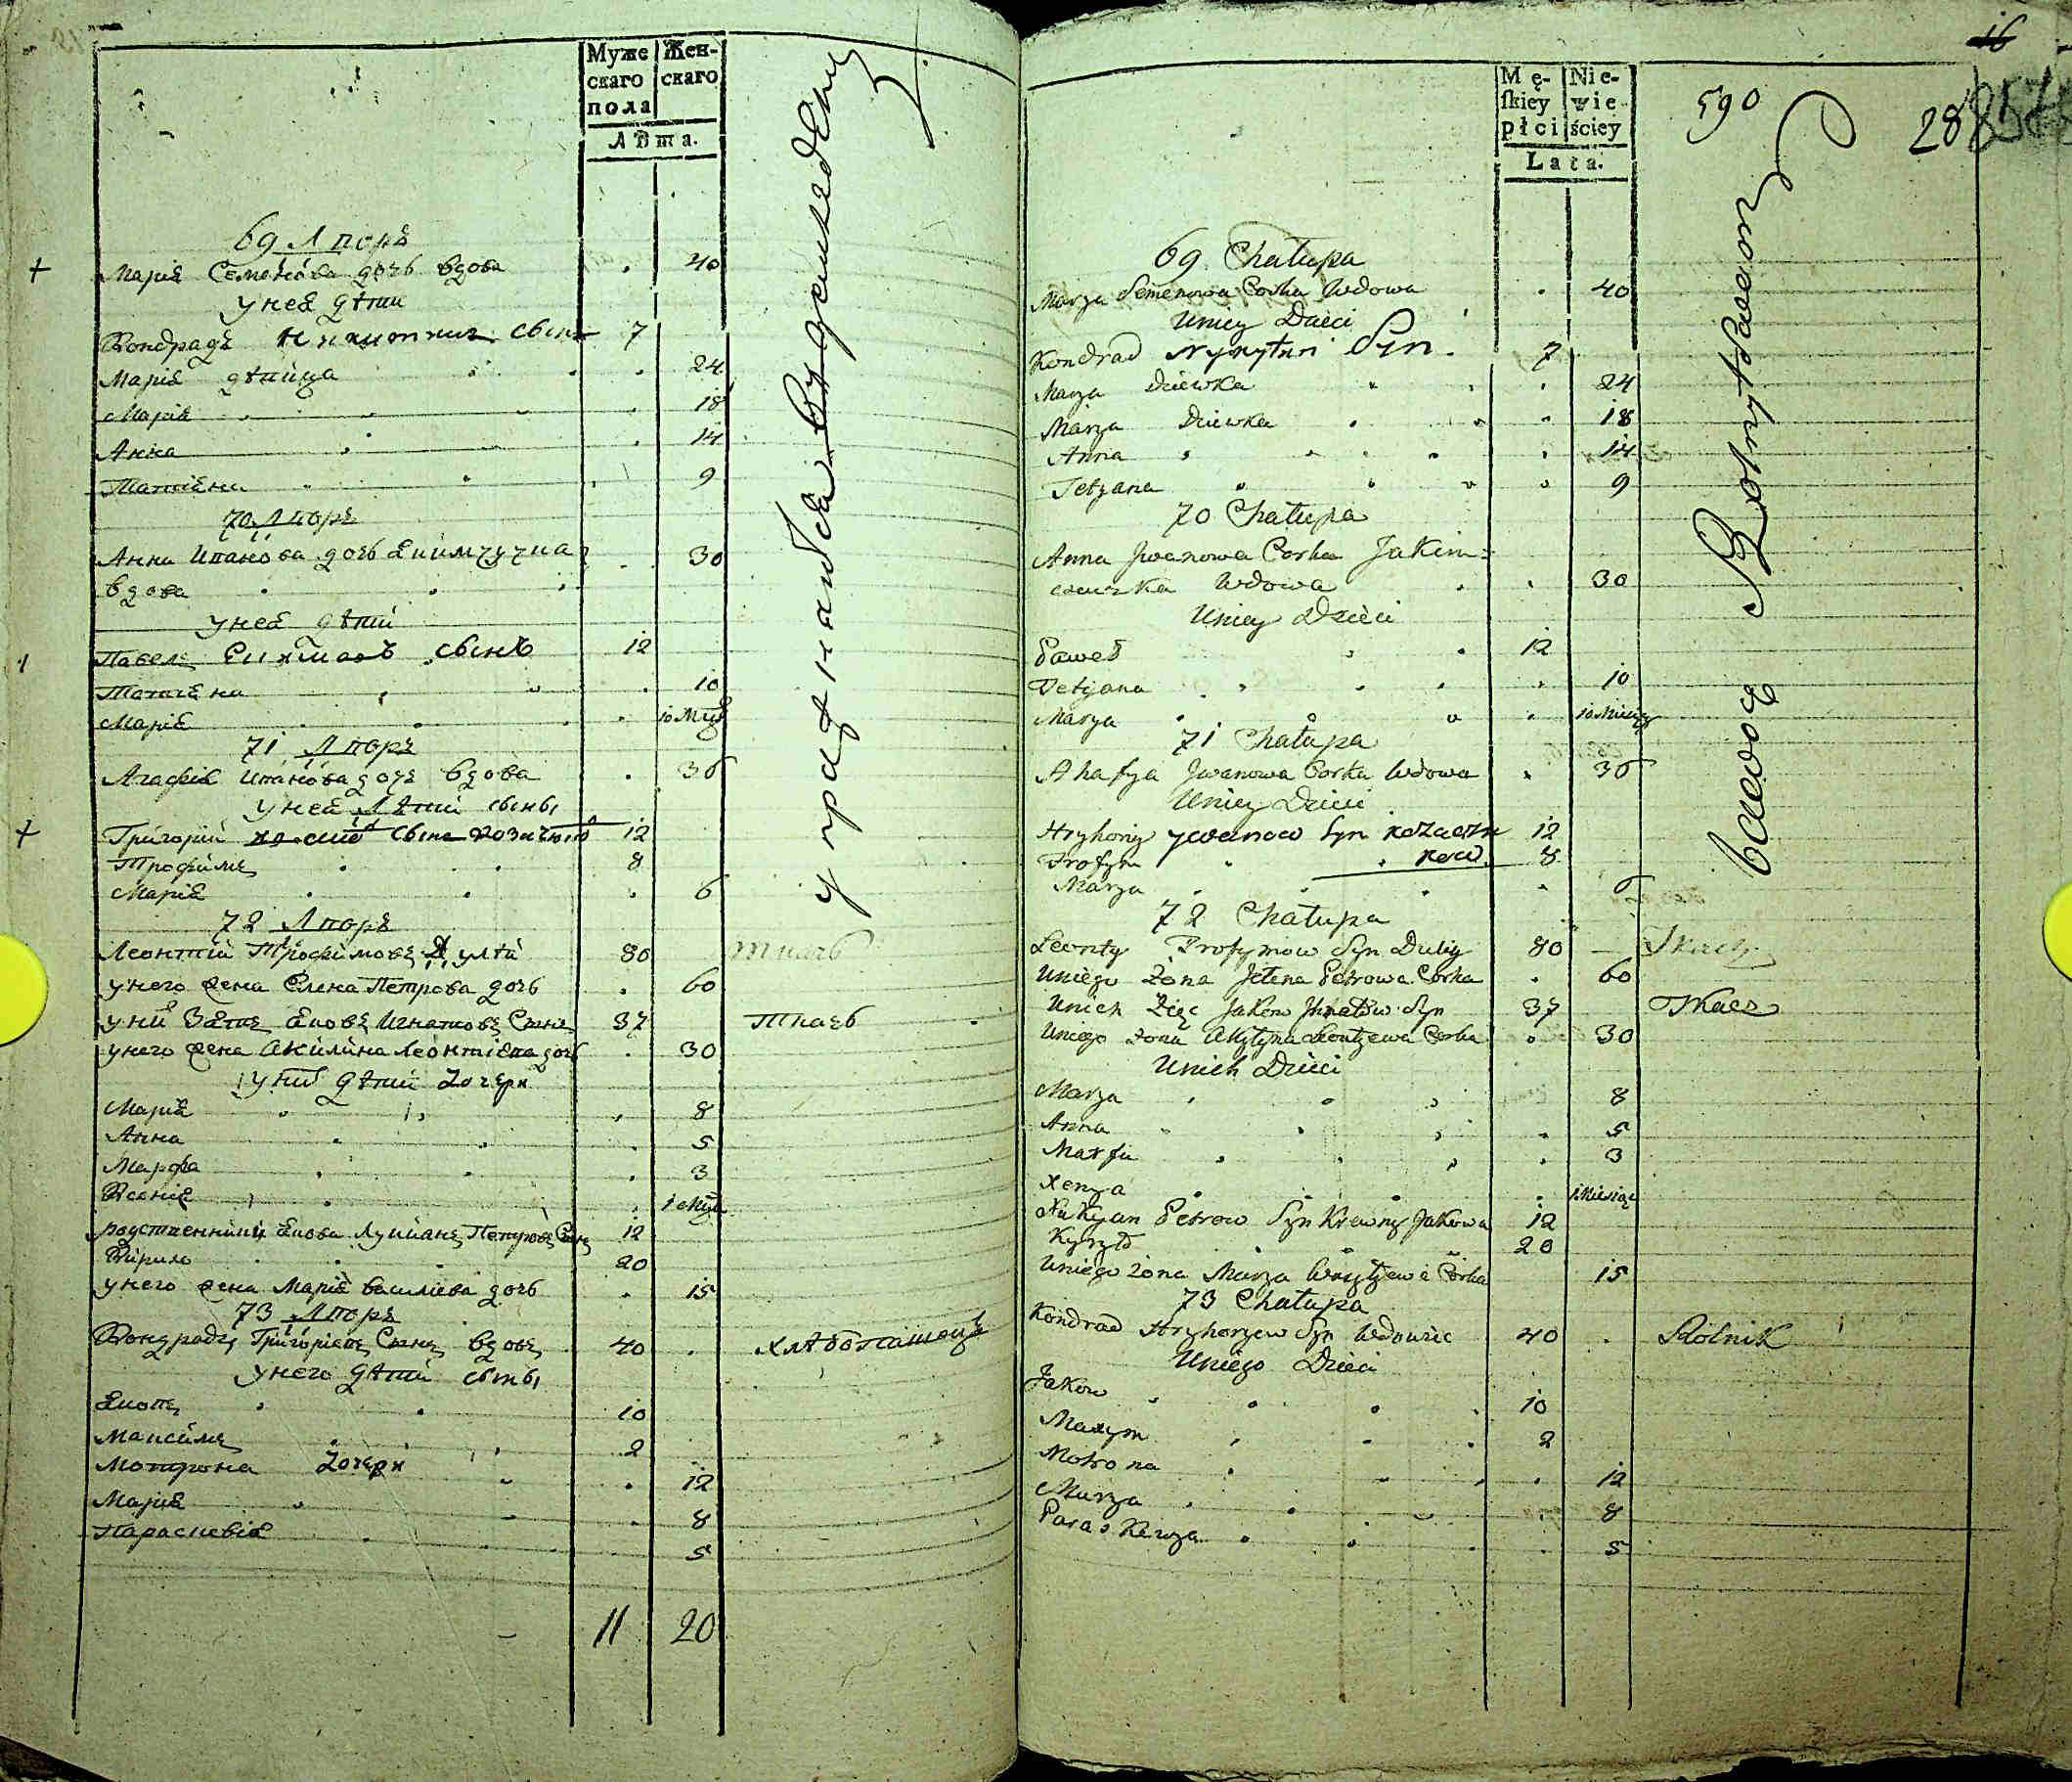 Муже
скаго
пола
Жен-
скаго
Лѣта.
69 Дворъ
Марія Семенова дочь вдова . 40
у нея дѣти
Кондрадъ Никитинъ сынъ 7
Марія дѣвица . 24
Марія . 18
Анна . 14
Татіяна . 9
70 Дворъ
Анна Иванова дочь Якимчучка . 30
вдова
у нея дѣти
Павелъ сынъ 12
Татіяна . 10
Марія . 10 Мцъ
71 Дворъ
Агафія Иванова дочь вдова . 36
у нея Дѣти сыны
Григорій сынъ 12
Трофимъ 8
Марія . 6
72 Дворъ
Леонтій Трофимовъ 80 ткачь
у него жена Елена Петрова дочь . 60
у ни Зять Яковъ Игнатовъ Сынъ 37 Ткачь
у него жена Акилина Леонтіева дочь . 30
у ни дѣти дочери
Марія . 8
Анна . 5
Марфа . 3
Ксенія . 1 Мцъ
родственникъ Якова Лукианъ Петровъ Сынъ 12
Кирило 20
у него жена Марія Василіева дочь . 15
73 Дворъ
Кондрадъ Григоріевъ Сынъ вдовъ 40 . хлѣбопашецъ
у него дѣти сыны
Яковъ 10
Максимъ 2
Мотрона дочери . 12
Марія . 8
Параскевія . 5
11 20
16
590
288
Mę-
skiey
płci
Nie-
wie
ściey
Lata.
69 Chałupa
Marya Semenowa Corka Wdowa . 40
Uniey Dzieci
Kondrad Nykytyn Syn. 7
Marya Dziewka . 24
Marya Dziewka . 18
Anna . 14
Tetyana . 9
70 Chałupa
Anna Jwanowa Corka Jakim=
czuczka Wdowa . 30
Uniey Dzieci
Paweł 12
Tetjana . 10
Marya . 10 Miesięcy
71 Chałupa
Ahafya Jwanowa Corka Wdowa . 36
Uniey Dzieci
Hryhoriy ywanow Syn 12
Trofym 8
Marya . 6
72 Chałupa
Leonty Trofymow Syn Duliy 80 — Tkacz
Uniego Żona Jełena Petrowa Corka . 60
Unich Zięc Jakow Jhnatow Syn 37 Tkacz
Uniego żona Akylyna Leontzewa Corka . 30
Unich Dzieci
Marya 8
Anna . 5
Marfa . 3
Xenya . 1 Miesiąc
Łukyan Petrow Syn Krewny Jakowa 12
Kyryło 20
Uniego żona Marya Wasylzewa Corka 15
73 Chałupa
Kondrad Hryhorzew Syn Wdowiec 40 . Rolnik
Uniego Dzieci
Jakow 10
Maxym 2
Motrona . 12
Marya . 8
Paraskewya . 5